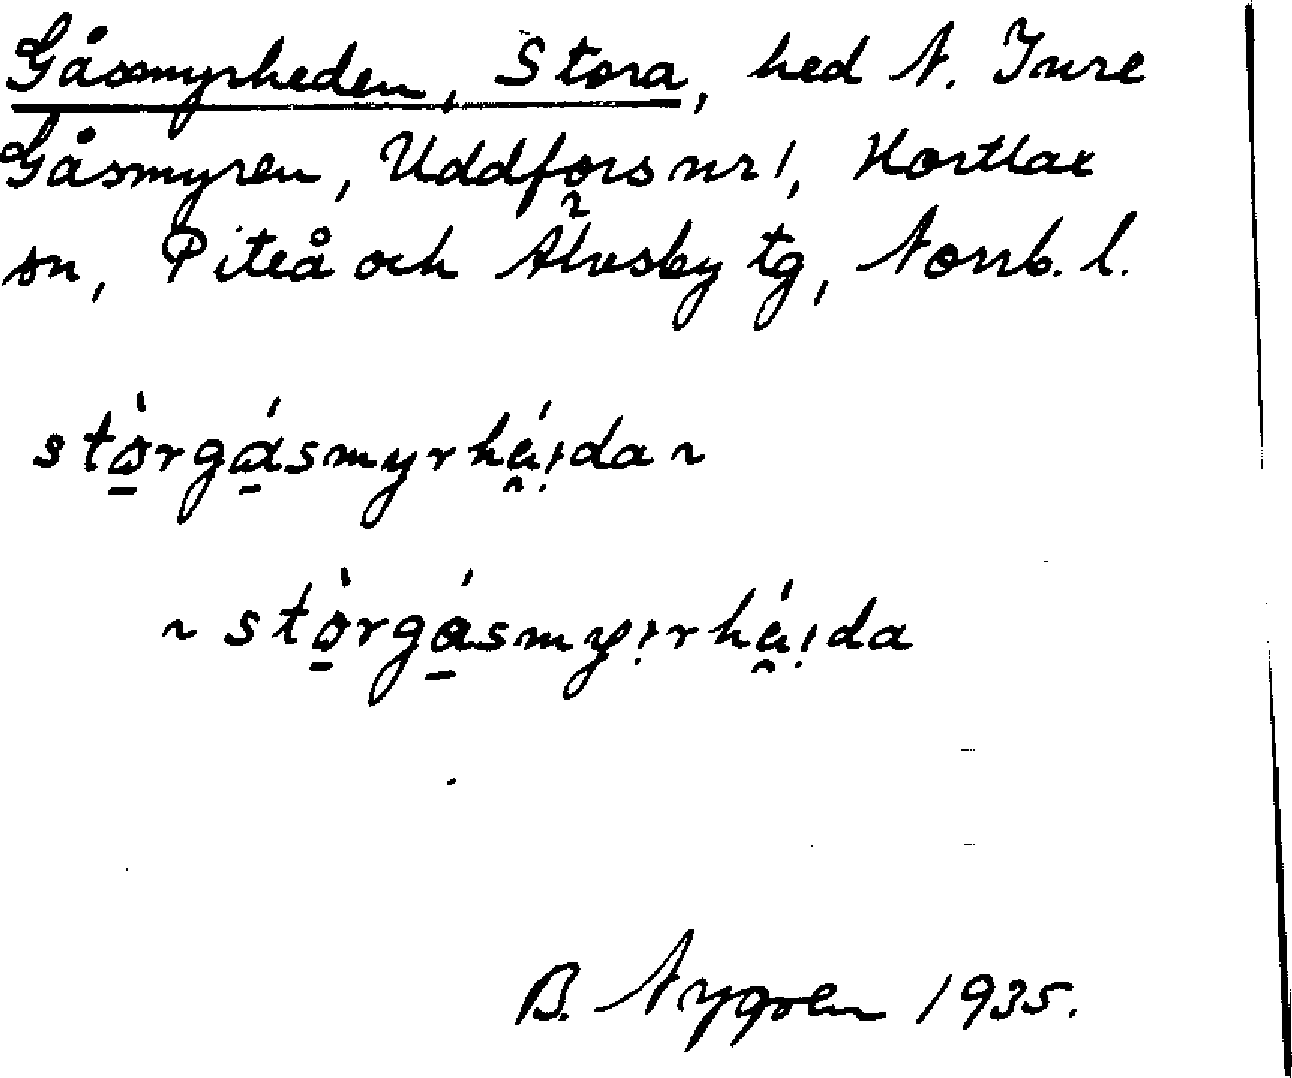 Gåsmyrheden, Stora, hed N. Jure
Gåsmyren, Uddfors nr 1, Hortlax
sn, Piteå och Älvsby tg, Norrb. l.
stò̠rgá̠smyrhá̯i̩da ~
~ stò̠rgá̠smyi̩rhá̯i̩da
B. Nygren 1935.